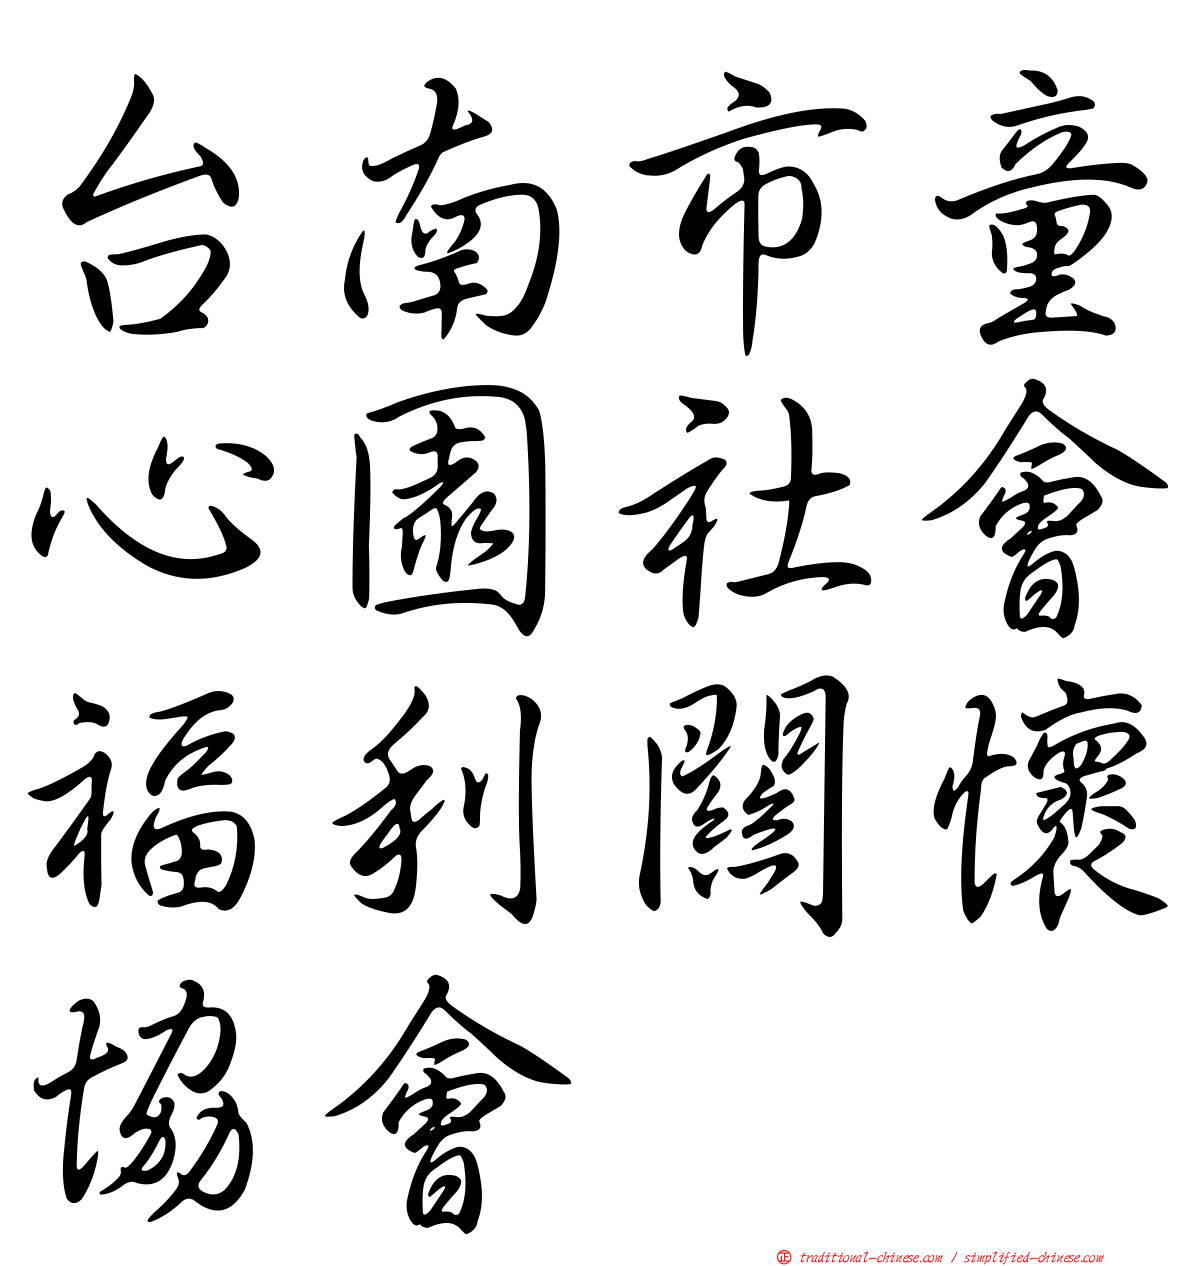 台南市童
心園社會
福利關懷
協會
正 traditional-chinese.com / simplified-chinese.com